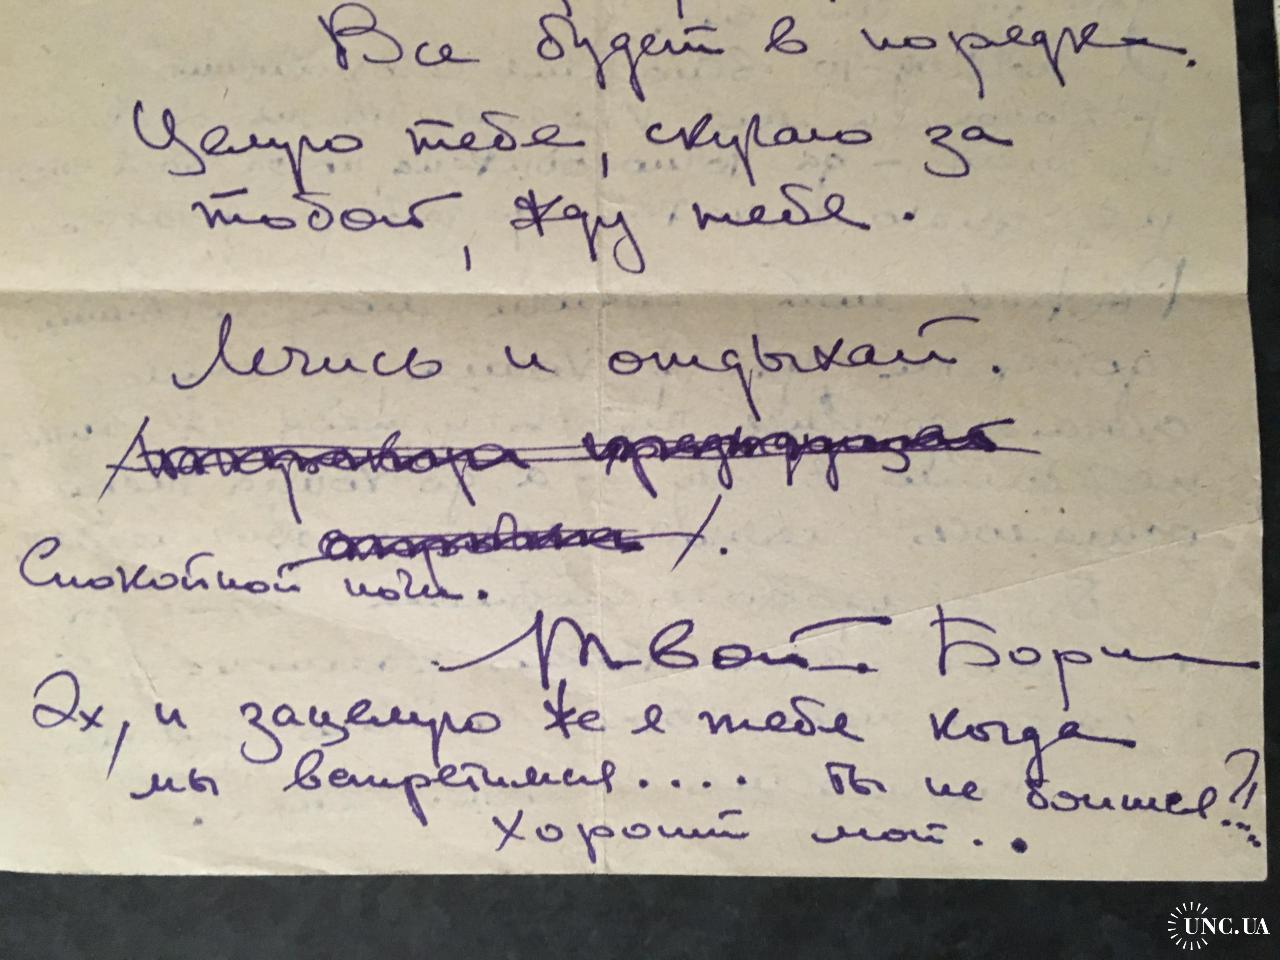 Все будет в порядке.
Целую тебе, скучаю за
тобой, жду тебе.
Лечись и отдыхай.
Спокойной ночи.
Твой Борис
Эх, и зацелую же я тебе когда
мы встретимся.... Ты не боишся?!...
хороший мой..
UNC.UA